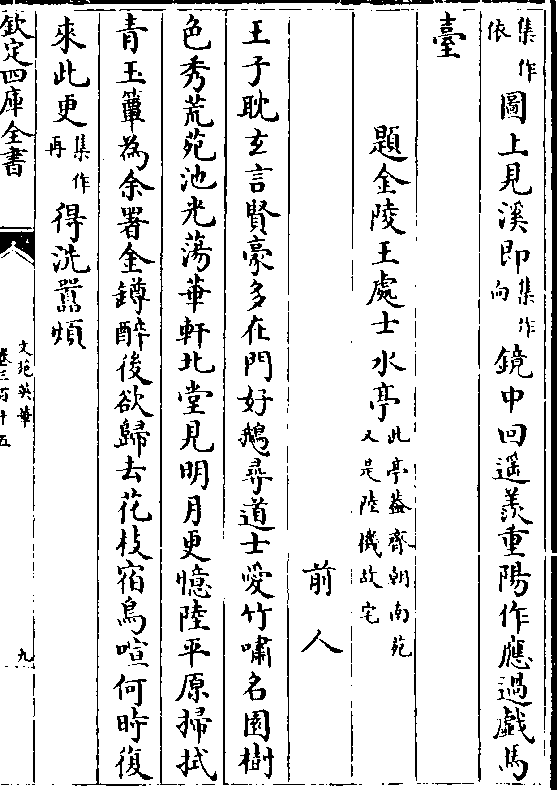 集作依圖上見溪即集作向鏡中回遥羨重陽作應過戲馬
臺
題金陵王處士水亭此亭葢齊朝南苑又是陸機故宅
前人
王子耽玄言賢豪多在門好鵝尋道士愛竹嘯名園樹
色秀荒苑池光蕩華軒北堂見明月更憶陸平原掃拭
青玉簟為余置金鐏醉後欲歸去花枝宿鳥喧何時復
來此更集作再得洗嚻煩
欽定四庫全書
文苑英華
卷三百十五
九